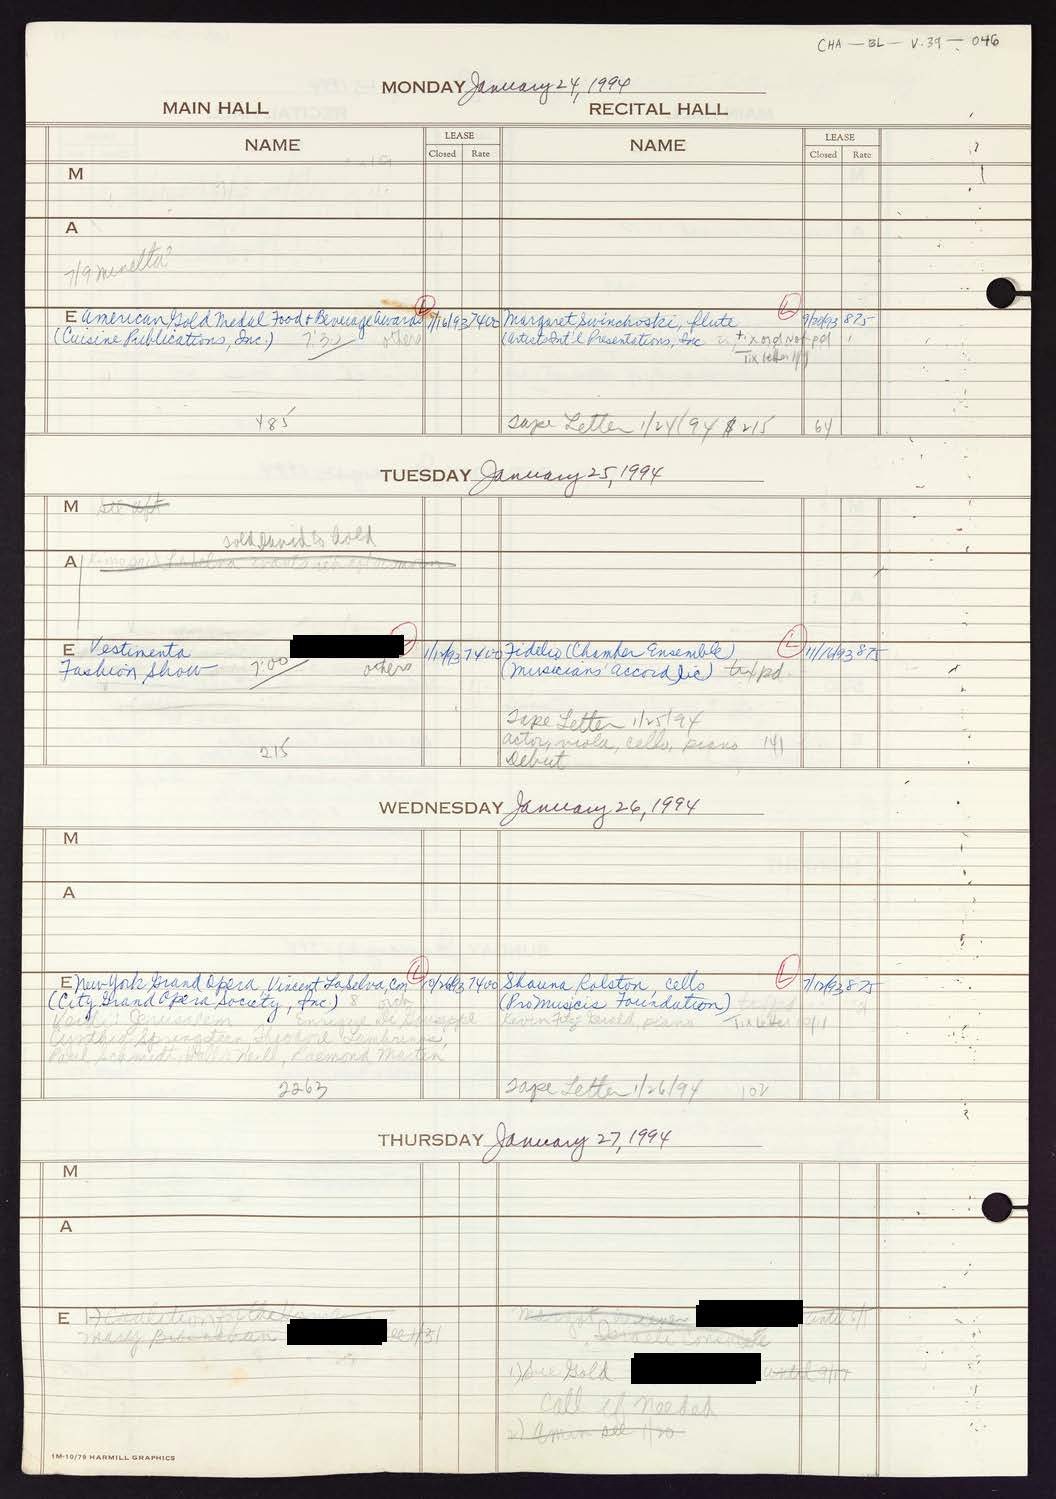 CHA - BL - V.39 - 046
MONDAY January 24, 1994
MAIN HALL RECITAL HALL
NAME LEASE NAME LEASE
Closed Rate Closed Rate
M
A
7/9 Minelta?
E American Gold Medal Food & Beverage Awards 1/16/93 7400 L
(Cuisine Publications, Inc.) 7:30 others
485
Margaret Swinchoski, flute L 9/20/93 875
(Artists Int'l Presentations, Inc tix ord not pd
Tix letter
Tape Letter 1/24/94 $215 64
TUESDAY January 25, 1994
M See aft
Sold David Gold
A
E Vestimenta L 1/12/93 7400
Fashion Show 7:00 others
215
Fidelio (Chamber Ensemble) L 11/16/93 875
(Musicians' Accord Inc) tix/pd.
Tape Letter 1/25/94
actor, viola, cello, piano 141
Debut
WEDNESDAY January 26, 1994
M
A
E New York Grand Opera, Vincent LaSelva, Con L 10/26/93 7400
(City Grand Opera Society, Inc.) 8 orch
Verdi: Jerusalem Enrique di Giuseppe
Cynthia Springsteen, Theodore Lambrinos,
Paul Schmidt, Neill, Raemond Martin
2263
Shauna Rolston, cello L 7/12/93 875
(Pro Musicis Foundation)
Kevin Fitz Gerald, piano Tix letter 10/11
Tape Letter 1/26/94 102
THURSDAY January 27, 1994
M
A
E 1) Coalition for the Homeless
Mary see 1/31
until
Israeli Concerte
1) Sue Gold until 9/17
Call if needed
2) Amin see 1/20
1M-10/79 HARMILL GRAPHICS